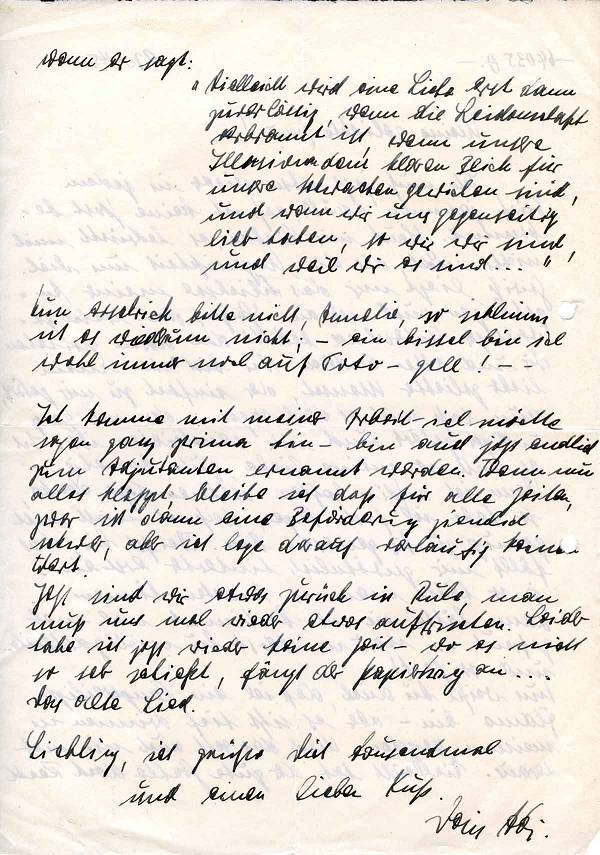 wenn er sagt:
"Vielleicht wird eine Liebe erst dann
zuverlässig, wenn die Leidenschaft
verbrannt ist, wenn unsere
Illusionen dem klaren Blick für
unsere Schwächen gewichen sind,
und wenn wir uns gegenseitig
lieb haben, so wie wir sind,
und weil wir es sind..."
Nun bitte nicht, so schlimm
ist es wiederum nicht; - ein bissel bin ich
wohl immer noch auf - gell! - -
Ich komme mit meiner Arbeit - ich möchte
sagen ganz prima hin - bin auch jetzt endlich
zum Adjutanten ernannt worden. Wenn nun
alles klappt, bleibe ich das für alle Zeiten,
zwar ist dann eine Beförderung ziemlich
schwer, aber ich lege darauf vorläufig keinen
Wert.
Jetzt sind wir etwas zurück in Ruhe, man
muß uns mal wieder etwas auffrischen. Leider
habe ich jetzt wieder keine Zeit - wo es nicht
so sehr schießt, fängt der Papierkrieg an....
Das alte Lied.
Liebling, ich grüße Dich tausendmal
und einen lieben Kuß.
Dein